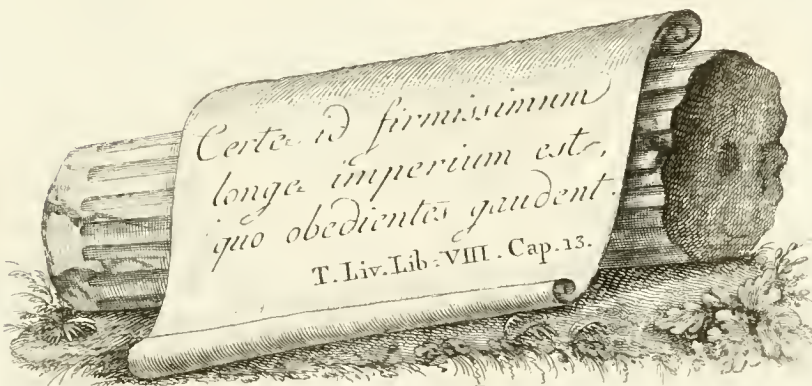 Certe id firmissimum
longe imperium est,
quo obedientes gaudent.
T. Liv. Lib. VIII. Cap. 13.